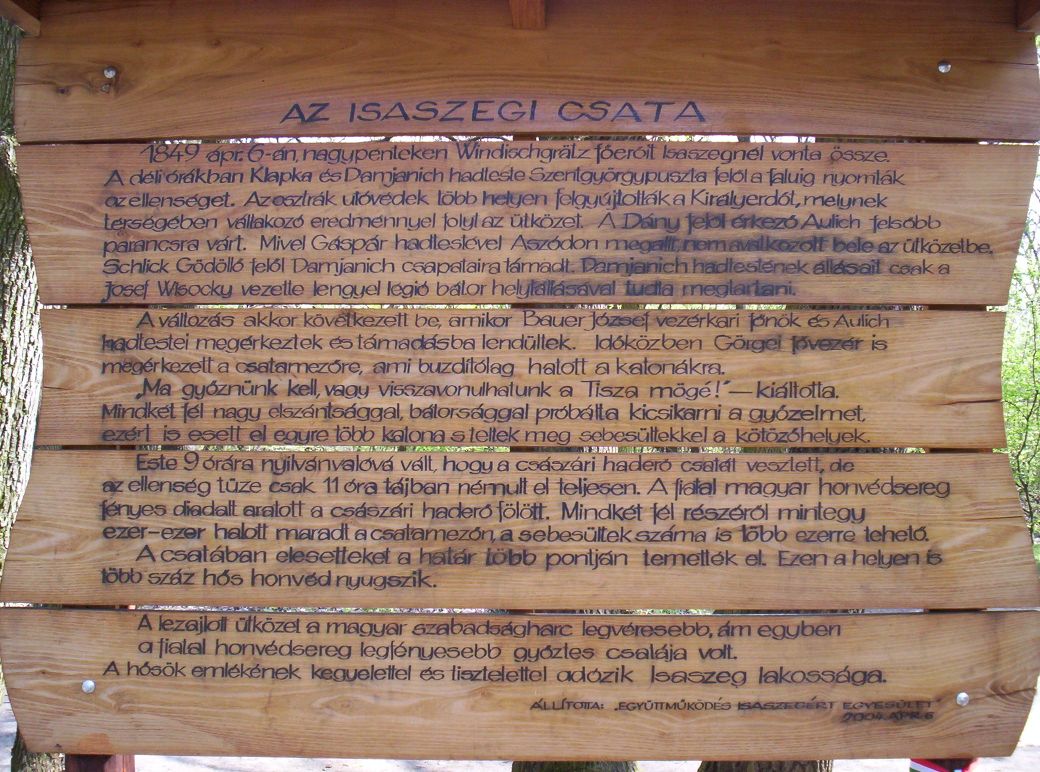 AZ ISASZEGI CSATA
1849 ápr. 6-án, nagypénteken Windischgrätz főerőit Isaszegnél vonta össze.
A déli órákban Klapka és Damjanich hadteste Szentgyörgypuszta felől a faluig nyomták
az ellenséget. Az osztrák utóvédek több helyen felgyújtották a Királyerdőt, melynek
térségében váltakozó eredménnyel folyt az ütközet. A Dány felől érkező Aulich felsőbb
parancsra várt. Mivel Gáspár hadtestével Aszódon megállt, nem avatkozott bele az ütközetbe.
Schlick Gödöllő felől Damjanich csapataira támadt. Damjanich hadtestének állásait csak a
Josef Wisocky vezette lengyel légió bátor helytállásával tudta megtartani.
A változás akkor következett be, amikor Bauer József vezérkari főnök és Aulich
hadtestei megérkeztek és támadásba lendültek. Időközben Görgei fővezér is
megérkezett a csatamezőre, ami buzdítólag hatott a katonákra.
„Ma győznünk kell, vagy visszavonulhatunk a Tisza mögé!” — kiáltotta.
Mindkét fél nagy elszántsággal, bátorsággal próbálta kicsikarni a győzelmet,
ezért is esett el egyre több katona s teltek meg sebesültekkel a kötözőhelyek.
Este 9 órára nyilvánvalóvá vált, hogy a császári haderő csatát vesztett, de
az ellenség tüze csak 11 óra tájban némult el teljesen. A fiatal magyar honvédsereg
fényes diadalt aratott a császári haderő fölött. Mindkét fél részéről mintegy
ezer-ezer halott maradt a csatamezőn, a sebesültek száma is több ezerre tehető.
A csatában elesetteket a határ több pontján temették el. Ezen a helyen is
több száz hős honvéd nyugszik.
A lezajlott ütközet a magyar szabadságharc legvéresebb, ám egyben
a fiatal honvédsereg legfényesebb győztes csatája volt.
A hősök emlékének kegyelettel és tisztelettel adózik Isaszeg lakossága.
ÁLLÍTOTTA: „EGYÜTTMŰKÖDÉS ISASZEGÉRT EGYESÜLET”
2004. ÁPR. 6